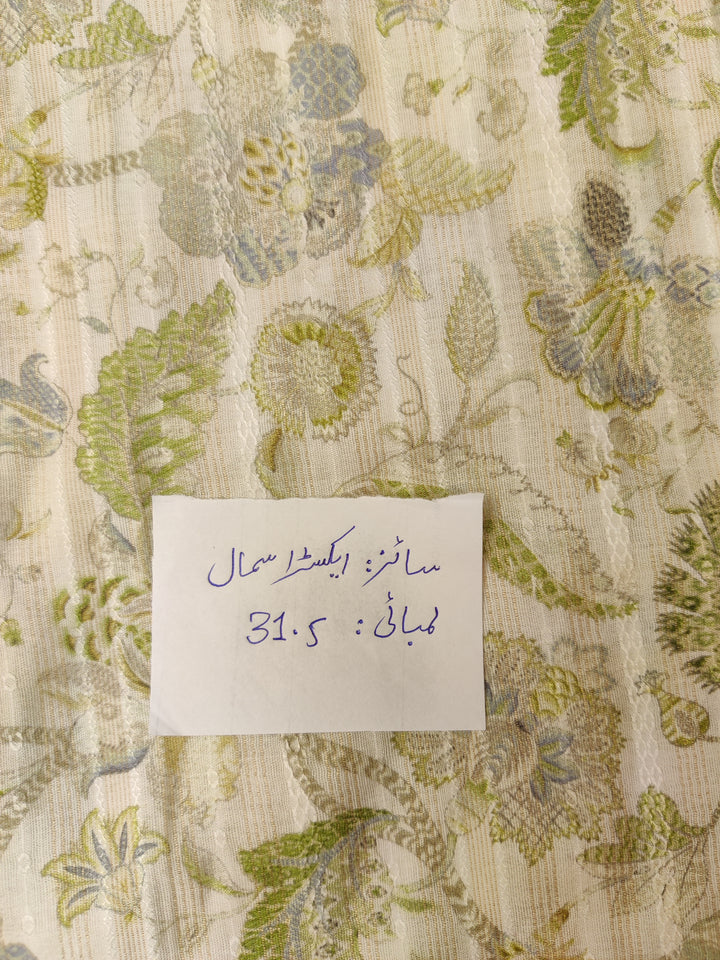 سائز: ایکسٹرا سمال
لمبائی: 31.5